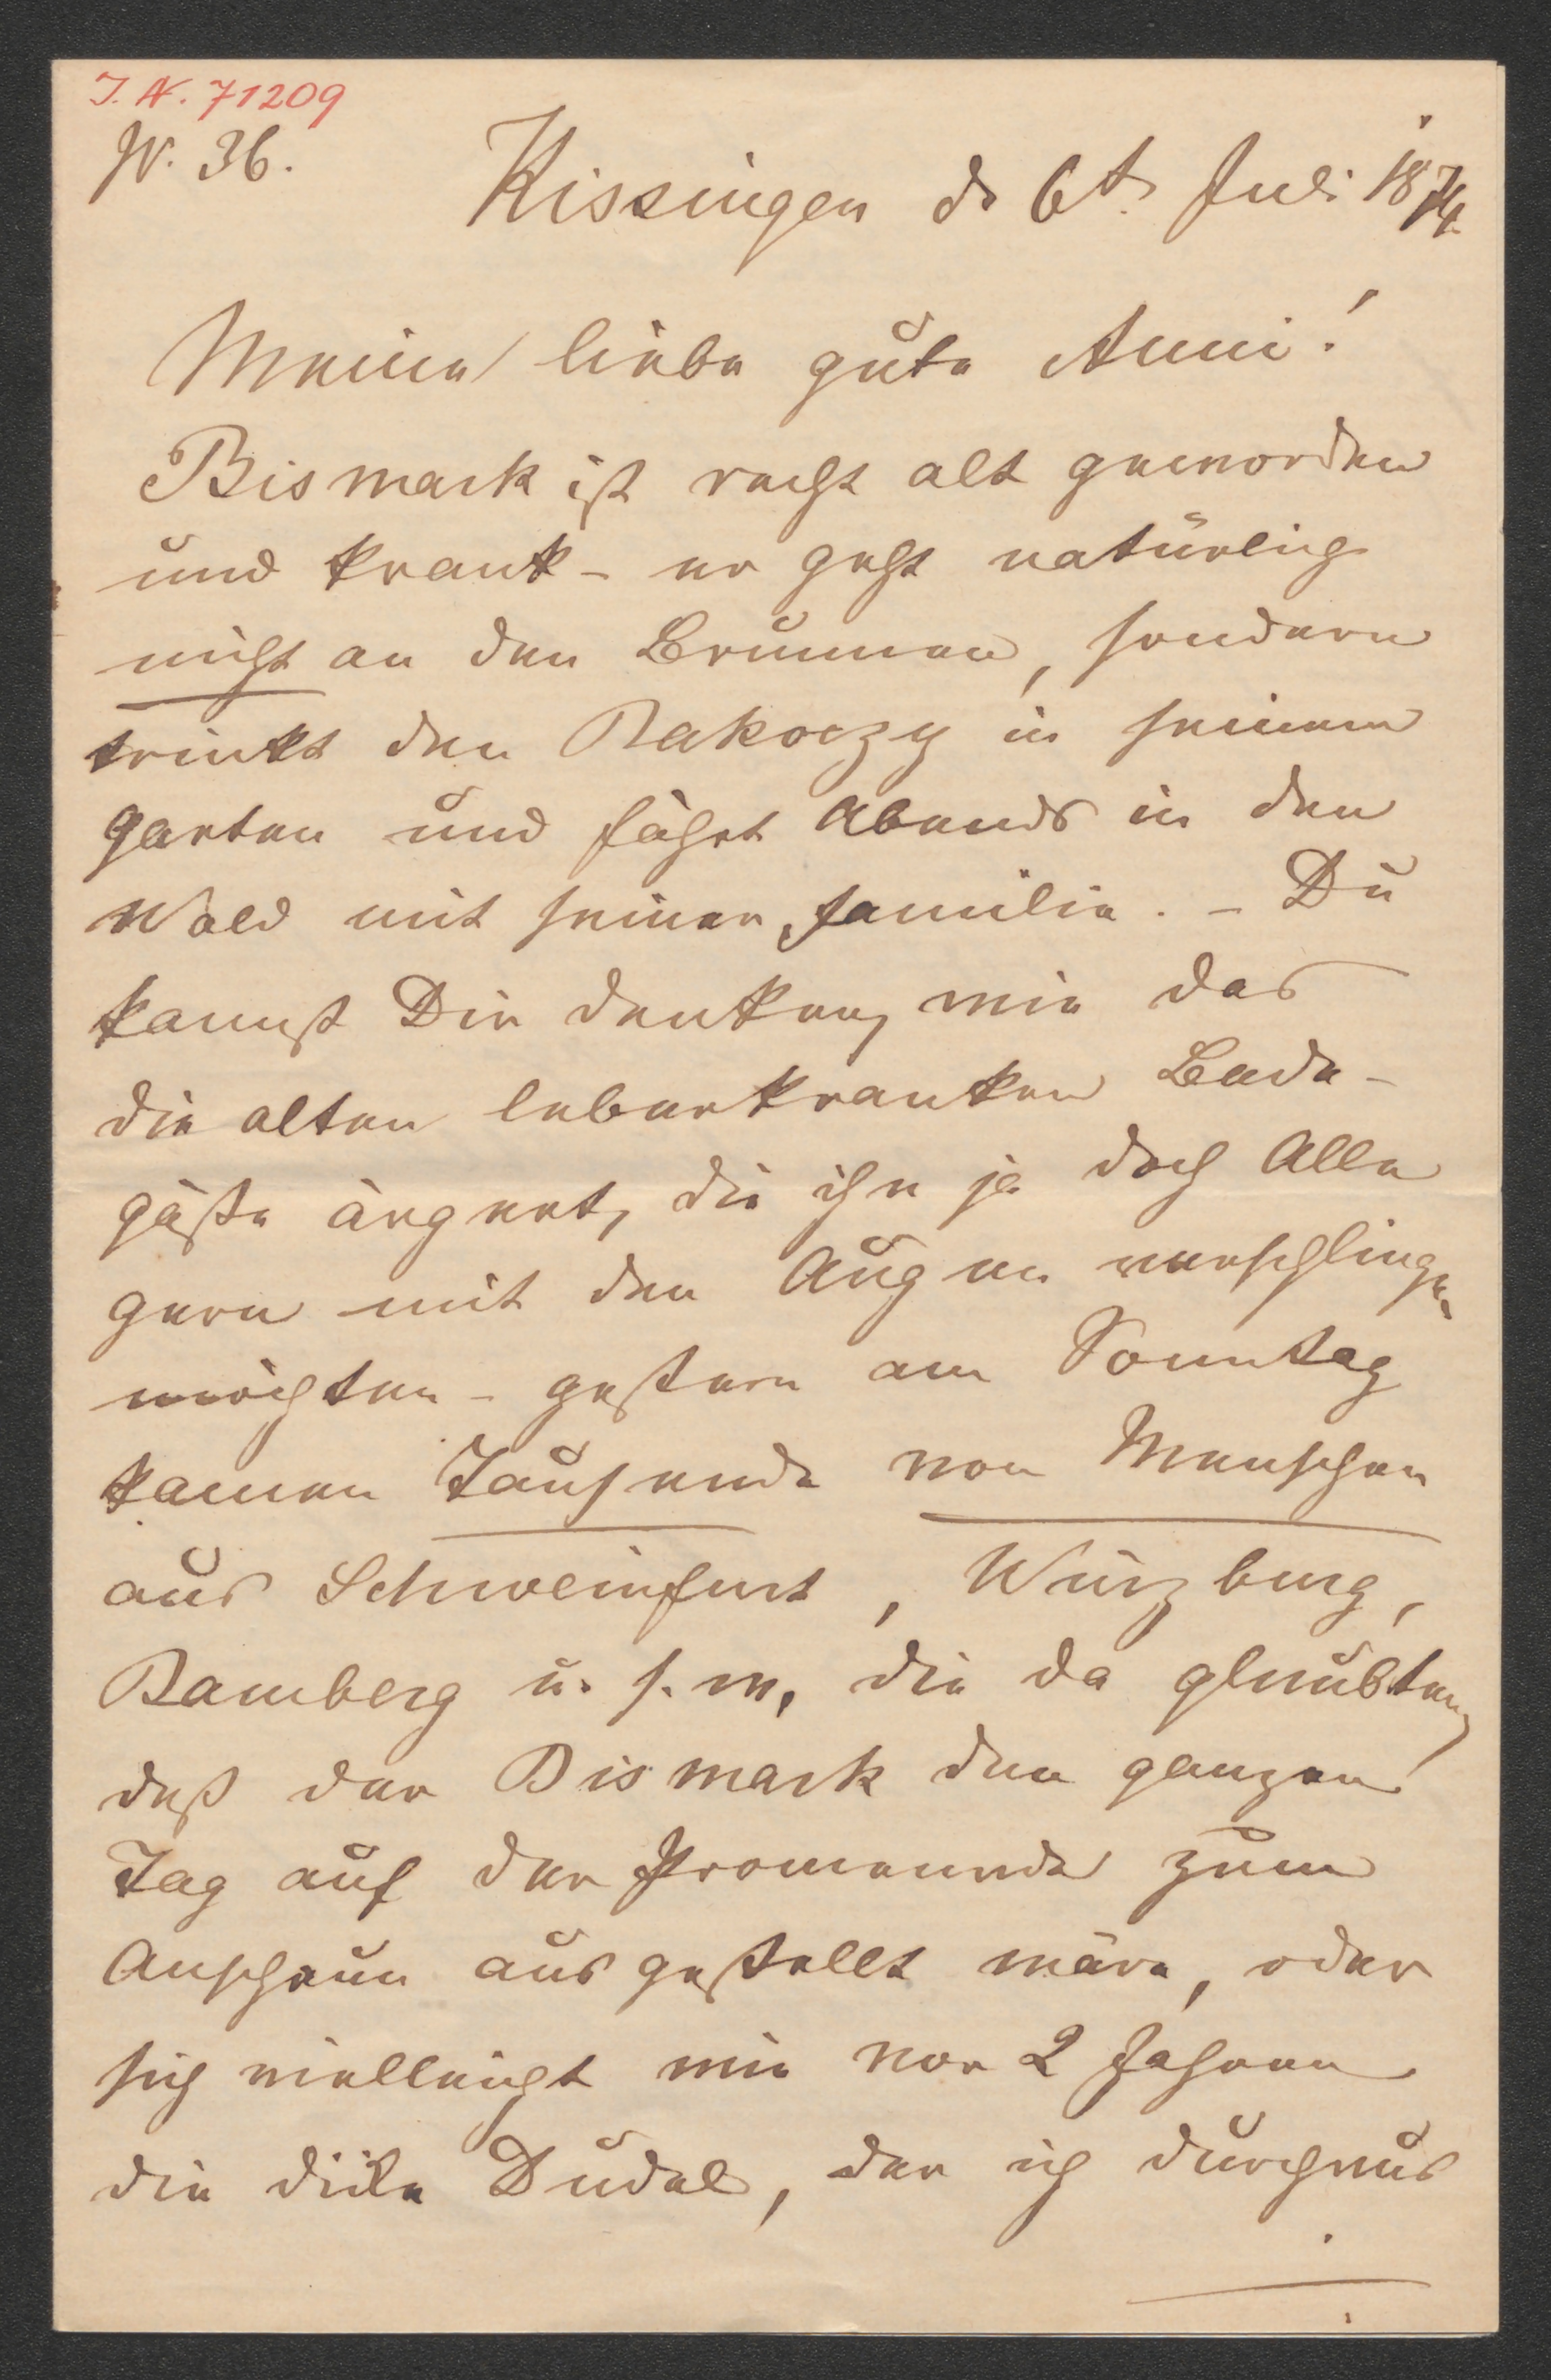 J. N. 71209
N. 36.
Kissingen d. 6t. Juli 1874
Meine liebe gute Anni!
Bismark ist recht alt geworden
und krank – er geht natürlich
nicht an den Brunnen, sondern
trinkt den Rakoczy in seinem
Garten und fährt Abends in den
Wald mit seiner Familie. – Du
kannst Dir denken, wie das
die alten leberkranken Bade-
gäste ärgert, die ihn ja doch Alle
gern mit den Augen verschlingen
möchten – gestern am Sonntag
kamen Tausende von Menschen
aus Schweinfurt, Würzburg,
Bamberg u. s. w., die da glaubten,
daß der Bismark den ganzen
Tag auf der Promenade zum
Anschaun ausgestellt wäre, oder
sich vielleicht wie vor 2 Jahren
die dicke Dudel, der ich durchaus